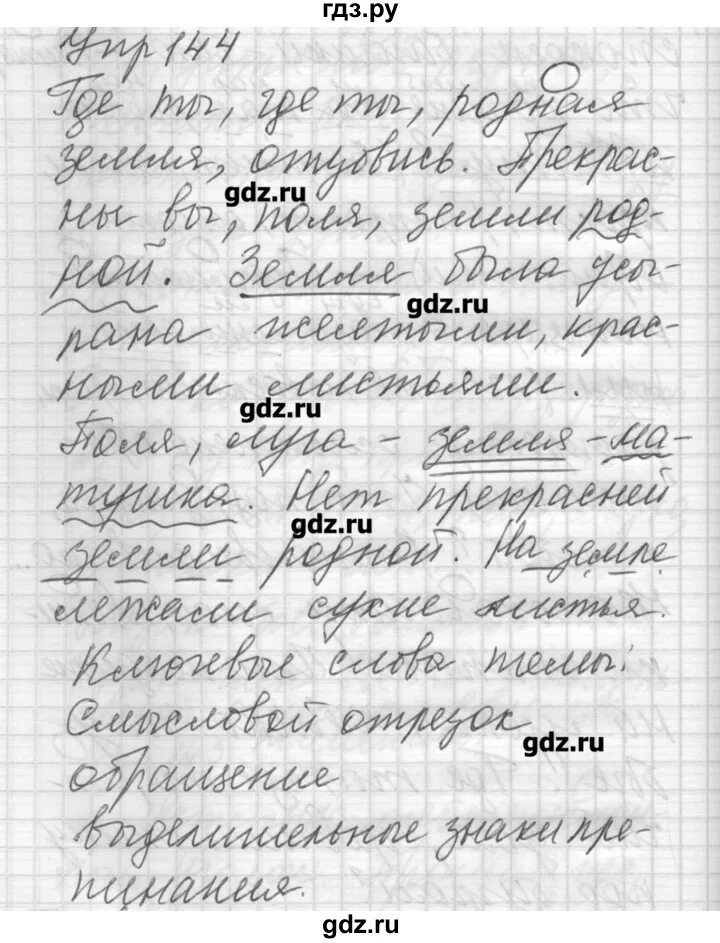 гдз.ру
Упр 144
Где ты, где ты, родная
земля, отзовись. Прекрас-
gdz.ru
ны вы, поля, земли род-
ной. Земля была усы-
gdz.ru
пана желтыми, крас-
ными листьями.
gdz.ru
Поля, луга - земля - ма-
тушка. Нет прекрасней
gdz.ru
земли родной. На земле
лежали сухие листья.
Ключевые слова темы:
Смысловой отрезок
gdz.ru
обращение
выделительные знаки пре-
пинания.
gdz.ru